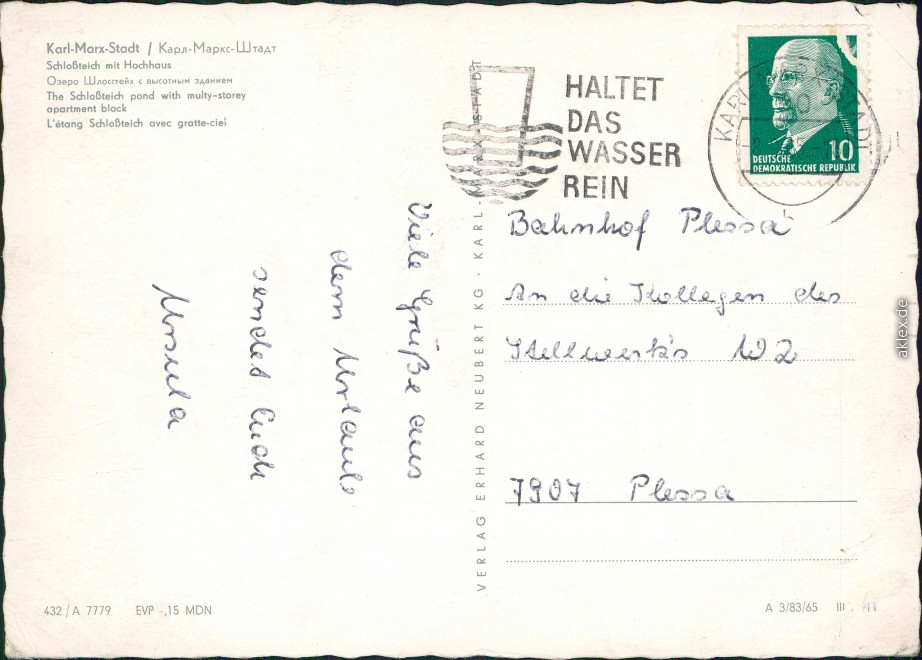 Karl-Marx-Stadt / Карл-Маркс-Штадт
Schloßteich mit Hochhaus
Озеро Шлосстейх с высотным зданием
The Schloßteich pond with multy-storey
apartment block
L'étang Schloßteich avec gratte-ciel
Viele Grüße aus
dem Urlaub
sendet Euch
Ursula
432/A 7779 EVP -,15 MDN
VERLAG ERHARD NEUBERT KG · KARL-MARX-STADT
HALTET
DAS
WASSER
REIN
KARL STADT
DEUTSCHE 10
DEMOKRATISCHE REPUBLIK
Bahnhof Plessa
An die Kollegen des
Stellwerks W2
7907 Plessa
A 3/83/65 III
aklex.de